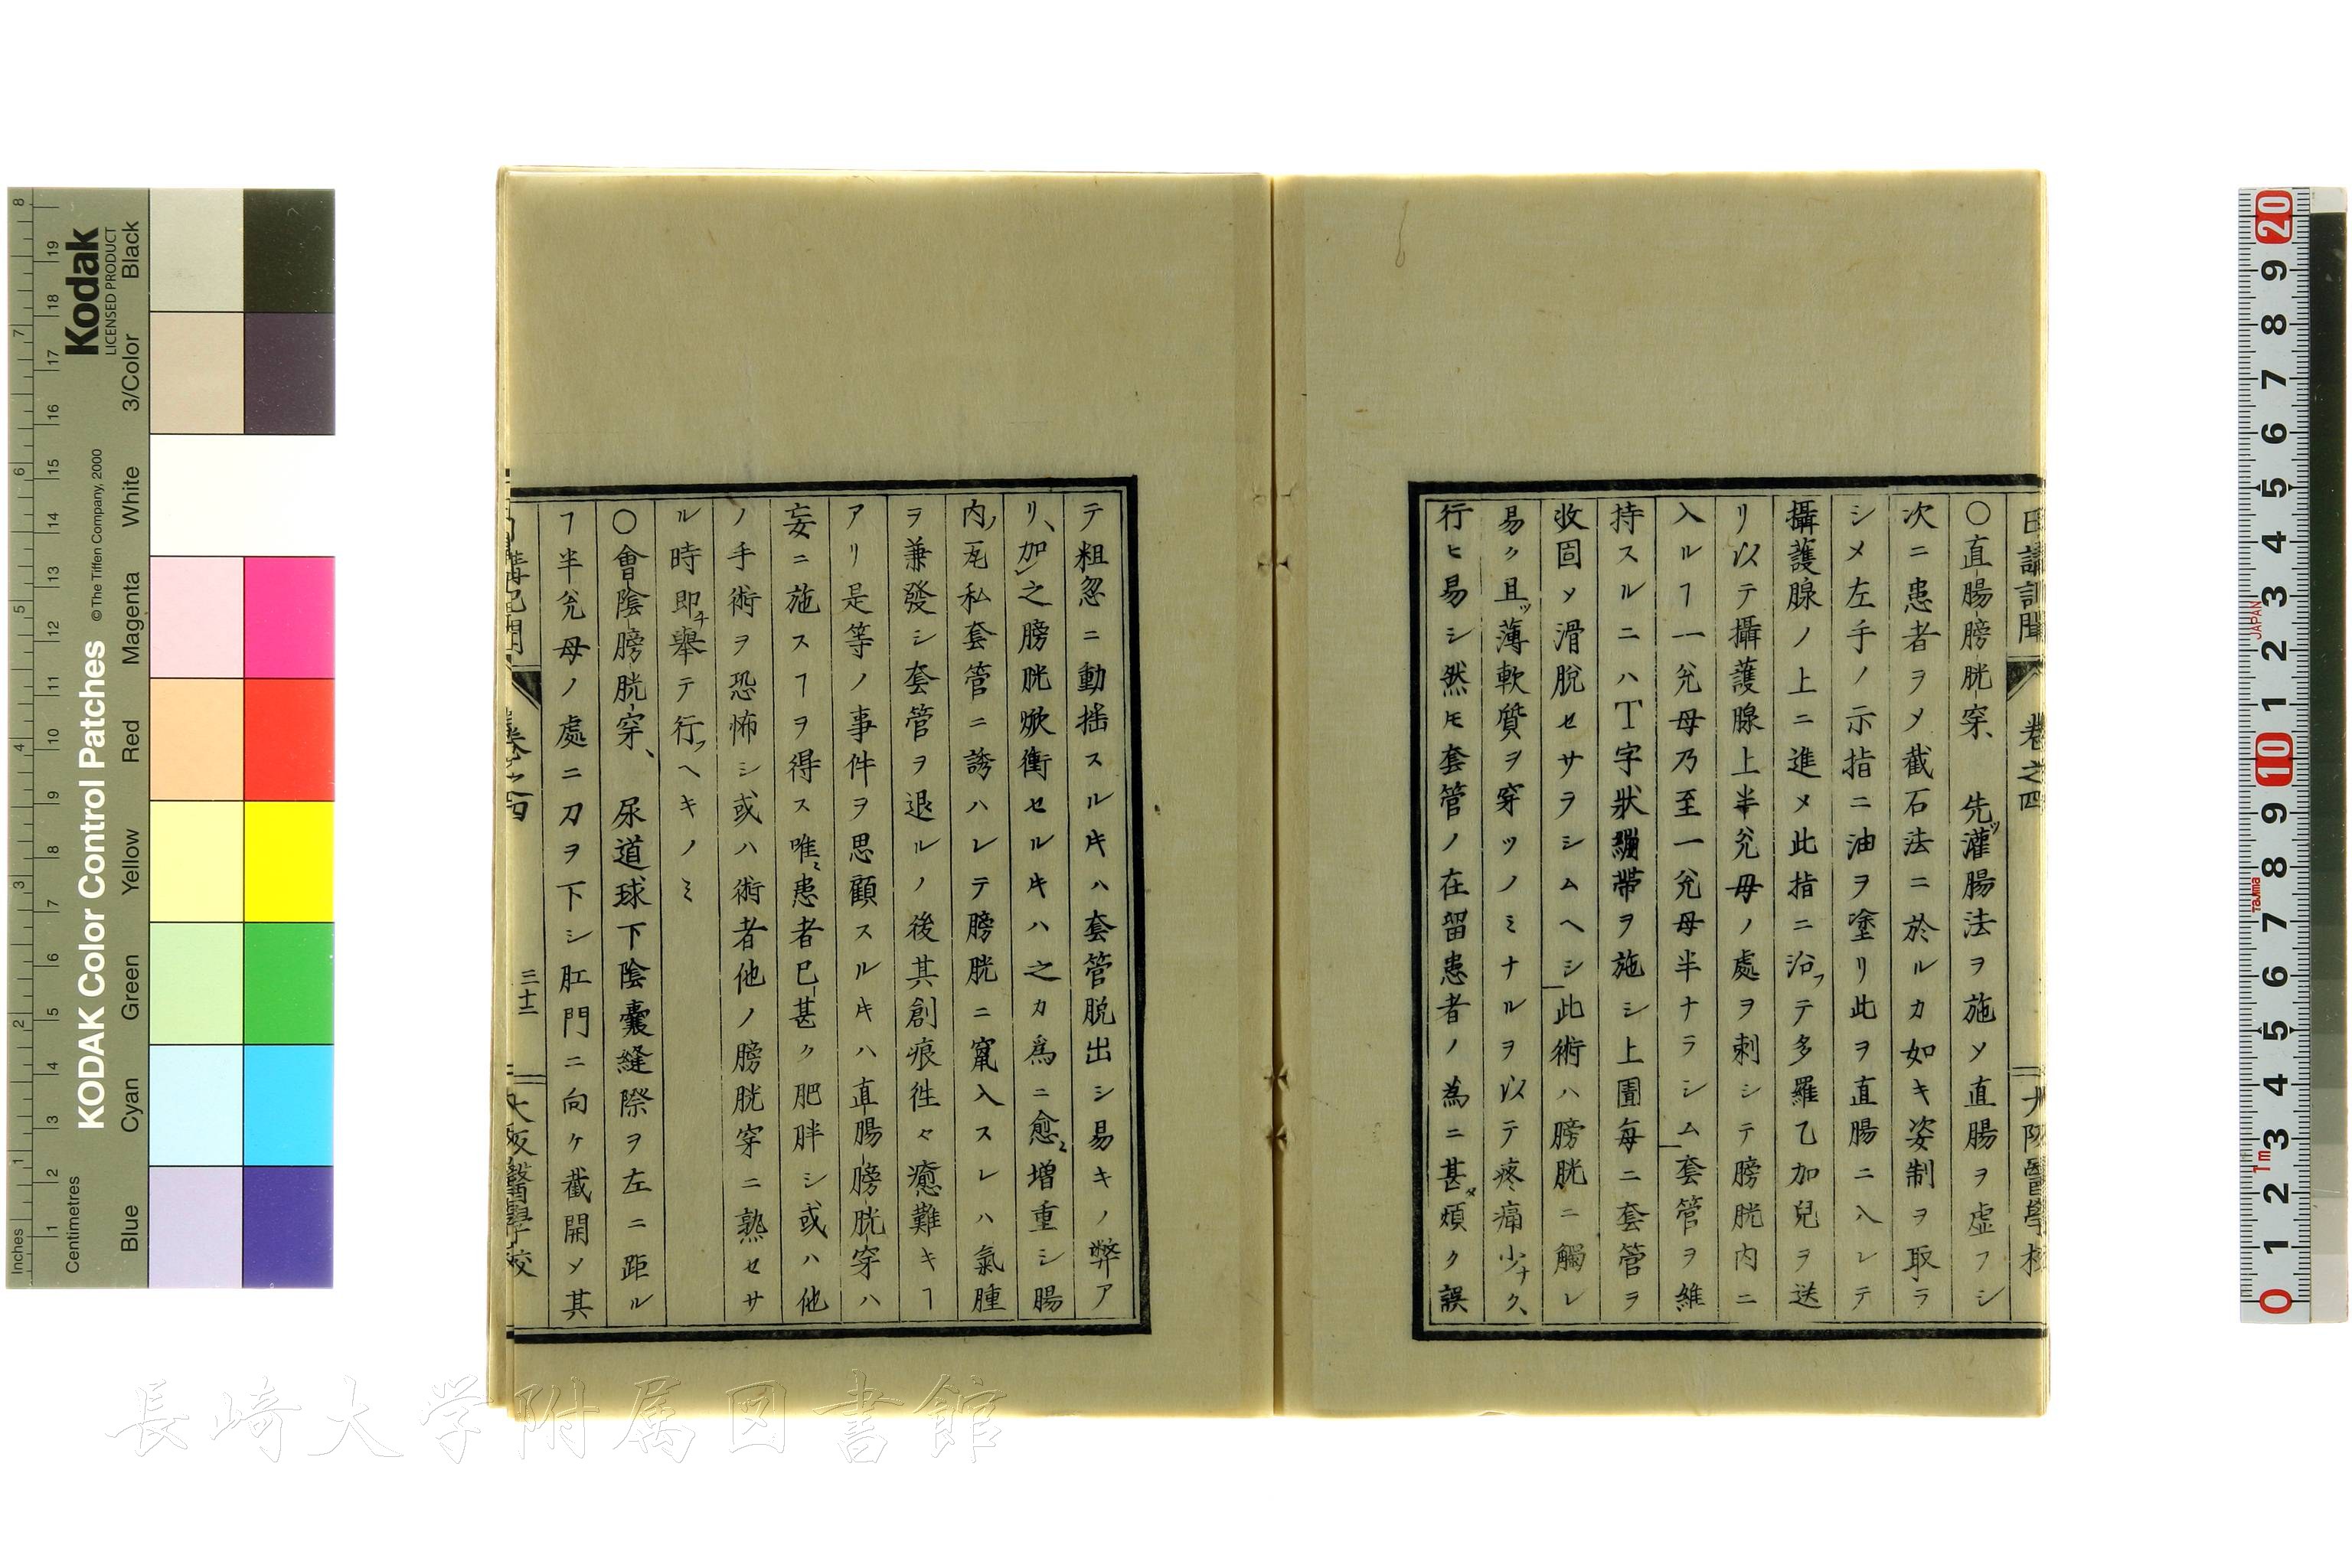 日講記聞 卷之四 大阪醫學校
〇直腸膀胱穿、 先ッ灌腸法ヲ施ソ直腸ヲ虚フシ
次ニ患者ヲメ截石法ニ於ルカ如キ姿制ヲ取ラ
シメ左手ノ示指ニ油ヲ塗リ此ヲ直腸ニ入レテ
攝護腺ノ上ニ進メ此指ニ沿フテ多羅乙加兒ヲ送
リ以テ攝護腺上半兊母ノ處ヲ刺シテ膀胱内ニ
入ルヿ一兊母乃至一兊母半ナラシム套管ヲ維
持スルニハT字狀繃帶ヲ施シ上圊每ニ套管ヲ
收固メ滑脫セサラシムヘシ此術ハ膀胱ニ觸レ
易ク且ッ薄軟質ヲ穿ツノミナルヲ以テ疼痛少ナク、
行ヒ易シ然モ套管ノ在留患者ノ為ニ甚タ煩ク誤
テ粗忽ニ動揺スル片ハ套管脱出シ易キノ弊ア
リ、加之膀胱焮衝セル片ハ之カ爲ニ愈〻増重シ腸
内ノ瓦私套管ニ誘ハレテ膀胱ニ竄入スレハ氣腫
ヲ兼發シ套管ヲ退ルノ後其創痕徃々癒難キヿ
アリ是等ノ事件ヲ思顧スル片ハ直腸膀胱穿ハ
妄ニ施スヿヲ得ス唯〻患者已甚ク肥胖シ或ハ他
ノ手術ヲ恐怖シ或ハ術者他ノ膀胱穿ニ熟セサ
ル時即チ舉テ行フヘキノミ
〇會陰膀胱穿、 尿道球下陰囊縫際ヲ左ニ距ル
ヿ半兊母ノ處ニ刀ヲ下シ肛門ニ向ケ截開ソ其
日講記聞 卷之四 三十三 大阪醫學校
長崎大学附属図書館
KODAK Color Control Patches
© The Tiffen Company, 2000
Kodak
LICENSED PRODUCT
Inches
Centimetres
Blue Cyan Green Yellow Red Magenta White 3/Color Black
JAPAN
TAJIMA
1m